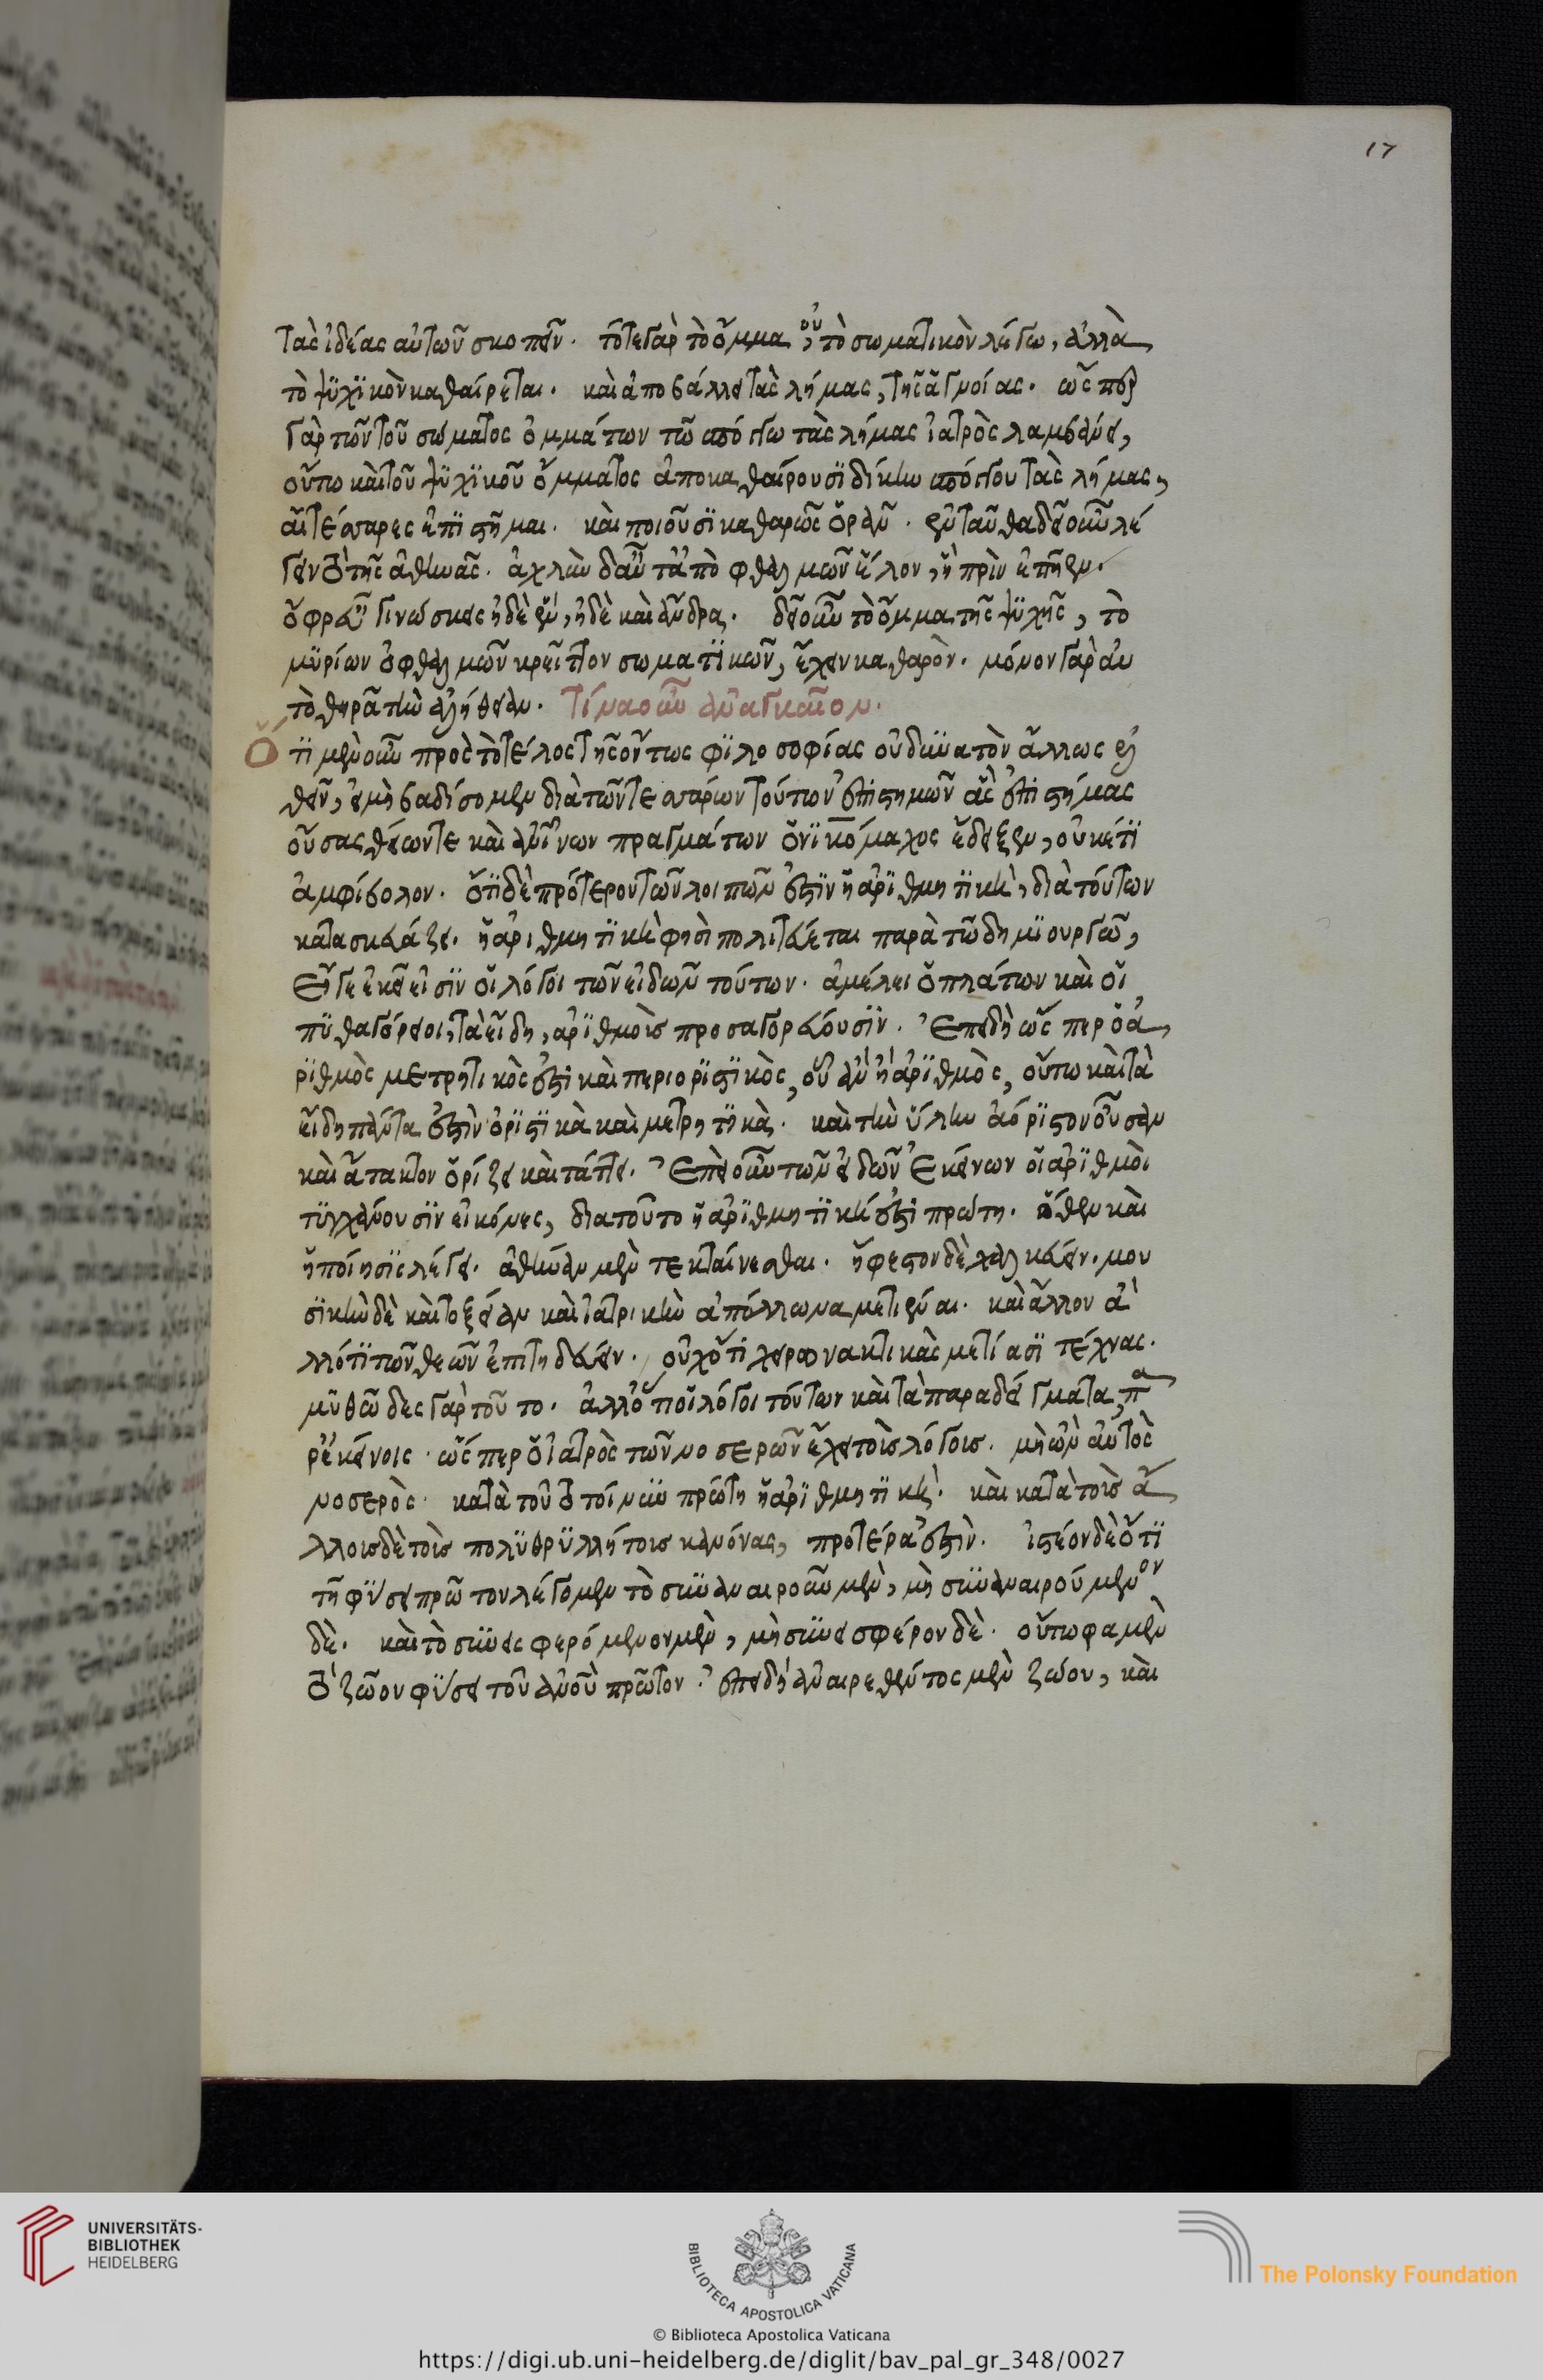 17
τὰς ἰδέας αὐτῶν σκοπεῖν. τότε γὰρ τὸ ὄμμα, οὐ τὸ σωματικὸν λέγω, ἀλλὰ
τὸ ψυχικὸν καθαίρεται. καὶ ἀποβάλλει τὰς λήμας, τῆς ἀγνοίας. ὥσπερ
γὰρ τῶν τοῦ σώματος ὀμμάτων τῶ ὑπόπτω τὰς λήμας ἰατρὸς λαμβάνει,
οὕτω καὶ τοῦ ψυχικοῦ ὄμματος ἀποκαθαίρουσι δίκην τὰς λήμας,
αἱ τέσσαρες ἐπιστῆμαι. καὶ ποιοῦσι καθαρῶς ὁρᾶν. ἐνταῦθα δεῖ οὖν λέ
γειν τὸ τῆς ἀθηνᾶς. ἀχλὺν δ' αὖ τ' ἀπὸ φθαλμῶν ἕλον, ἣ πρὶν ἐπῆεν.
ὄφρ' εὖ γινώσκεις ἠδὲ θεὸν, ἠδὲ καὶ ἄνδρα. δεῖ οὖν τὸ ὄμμα τῆς ψυχῆς, τὸ
μυρίων ὀφθαλμῶν κρεῖττον σωματικῶν, ἔχειν καθαρόν. μόνον γὰρ ἂν
τὸ θηρᾶ τὴν ἀλήθειαν. Τίνα οὖν ἀναγκαῖον.
Ὅτι μὲν οὖν πρὸς τὸ τέλος τῆς ὄντως φιλοσοφίας οὐ δυνατὸν ἄλλως ἐλ
θεῖν, εἰ μὴ βαδίσομεν διὰ τῶν τεσσάρων τούτων ἐπιστημῶν ἃς ἐπιστήμας
οὔσας θείων τε καὶ ἀνθρωπίνων πραγμάτων ὁ νικόμαχος ἔδειξεν, οὐκέτι
ἀμφίβολον. ὅτι δὲ πρότερον τῶν λοιπῶν ἐστὶν ἡ ἀριθμητικὴ, διὰ τούτων
κατασκευάζει. ἡ ἀριθμητικὴ φησὶ πολιτεύεται παρὰ τῶ δημιουργῶ,
εἴ γε ἐκεῖ εἰσὶν οἱ λόγοι τῶν εἰδῶν τούτων. ἀμέλει ὁ πλάτων καὶ οἱ
πυθαγόρειοι, τὰ εἴδη, ἀριθμοὺς προσαγορεύουσιν. Ἐπειδὴ ὥσπερ ὁ ἀ
ριθμὸς μετρητικὸς ἐστι καὶ περιοριστικὸς, οὗ ἂν ᾖ ἀριθμὸς, οὕτω καὶ τὰ
εἴδη πάντα ἐστὶν ὁριστικὰ καὶ μετρητικὰ. καὶ τὴν ὕλην ἀόριστον οὖσαν
καὶ ἄτακτον ὁρίζει καὶ τάττει. Ἐπεὶ οὖν τῶν εἰδῶν ἐκείνων οἱ ἀριθμοὶ
τυγχάνουσιν εἰκόνες, διατοῦτο ἡ ἀριθμητικὴ ἐστι πρώτη. ὅθεν καὶ
ἡ ποίησις λέγει. ἀθηνᾶν μὲν τεκταίνεσθαι. ἥφεστον δὲ χαλκεύειν. μου
σικὴν δὲ καὶ τοξείαν καὶ ἰατρικὴν ἀπόλλωνα μετιέναι. καὶ ἄλλον ἄ
λλό τι τῶν θεῶν ἐπιτηδεύειν. οὐχ ὅτι χειρωνακτικὰς μετίασι τέχνας.
μυθῶδες γὰρ τοῦτο. ἀλλ' ὅτι οἱ λόγοι τούτων καὶ τὰ παραδείγματα, πα
ρ' ἐκείνοις. ὥσπερ ὁ ἰατρὸς τῶν νοσερῶν ἔχει τοὺς λόγους. μὴ ὢν αὐτὸς
νοσερὸς. κατὰ τοῦτο τοίνυν πρώτη ἡ ἀριθμητικὴ. καὶ κατὰ τοὺς ἄ
λλους δὲ τοὺς πολυθρυλλήτους κανόνας, προτέρα ἐστὶν. ἰστέον δὲ ὅτι
τῆ φύσει πρῶτον λέγομεν τὸ συναναιροῦν μὲν, μὴ συναναιρούμενον
δὲ. καὶ τὸ συνεισφερόμενον μὲν, μὴ συνεισφέρον δὲ. οὕτω φαμὲν
τὸ ζῶον φύσει τοῦ ἀνθρώπου πρῶτον. ἐπειδὴ ἀναιρεθέντος μὲν ζώου, καὶ
UNIVERSITÄTS-
BIBLIOTHEK
HEIDELBERG
BIBLIOTECA APOSTOLICA VATICANA
The Polonsky Foundation
© Biblioteca Apostolica Vaticana
https://digi.ub.uni-heidelberg.de/diglit/bav_pal_gr_348/0027